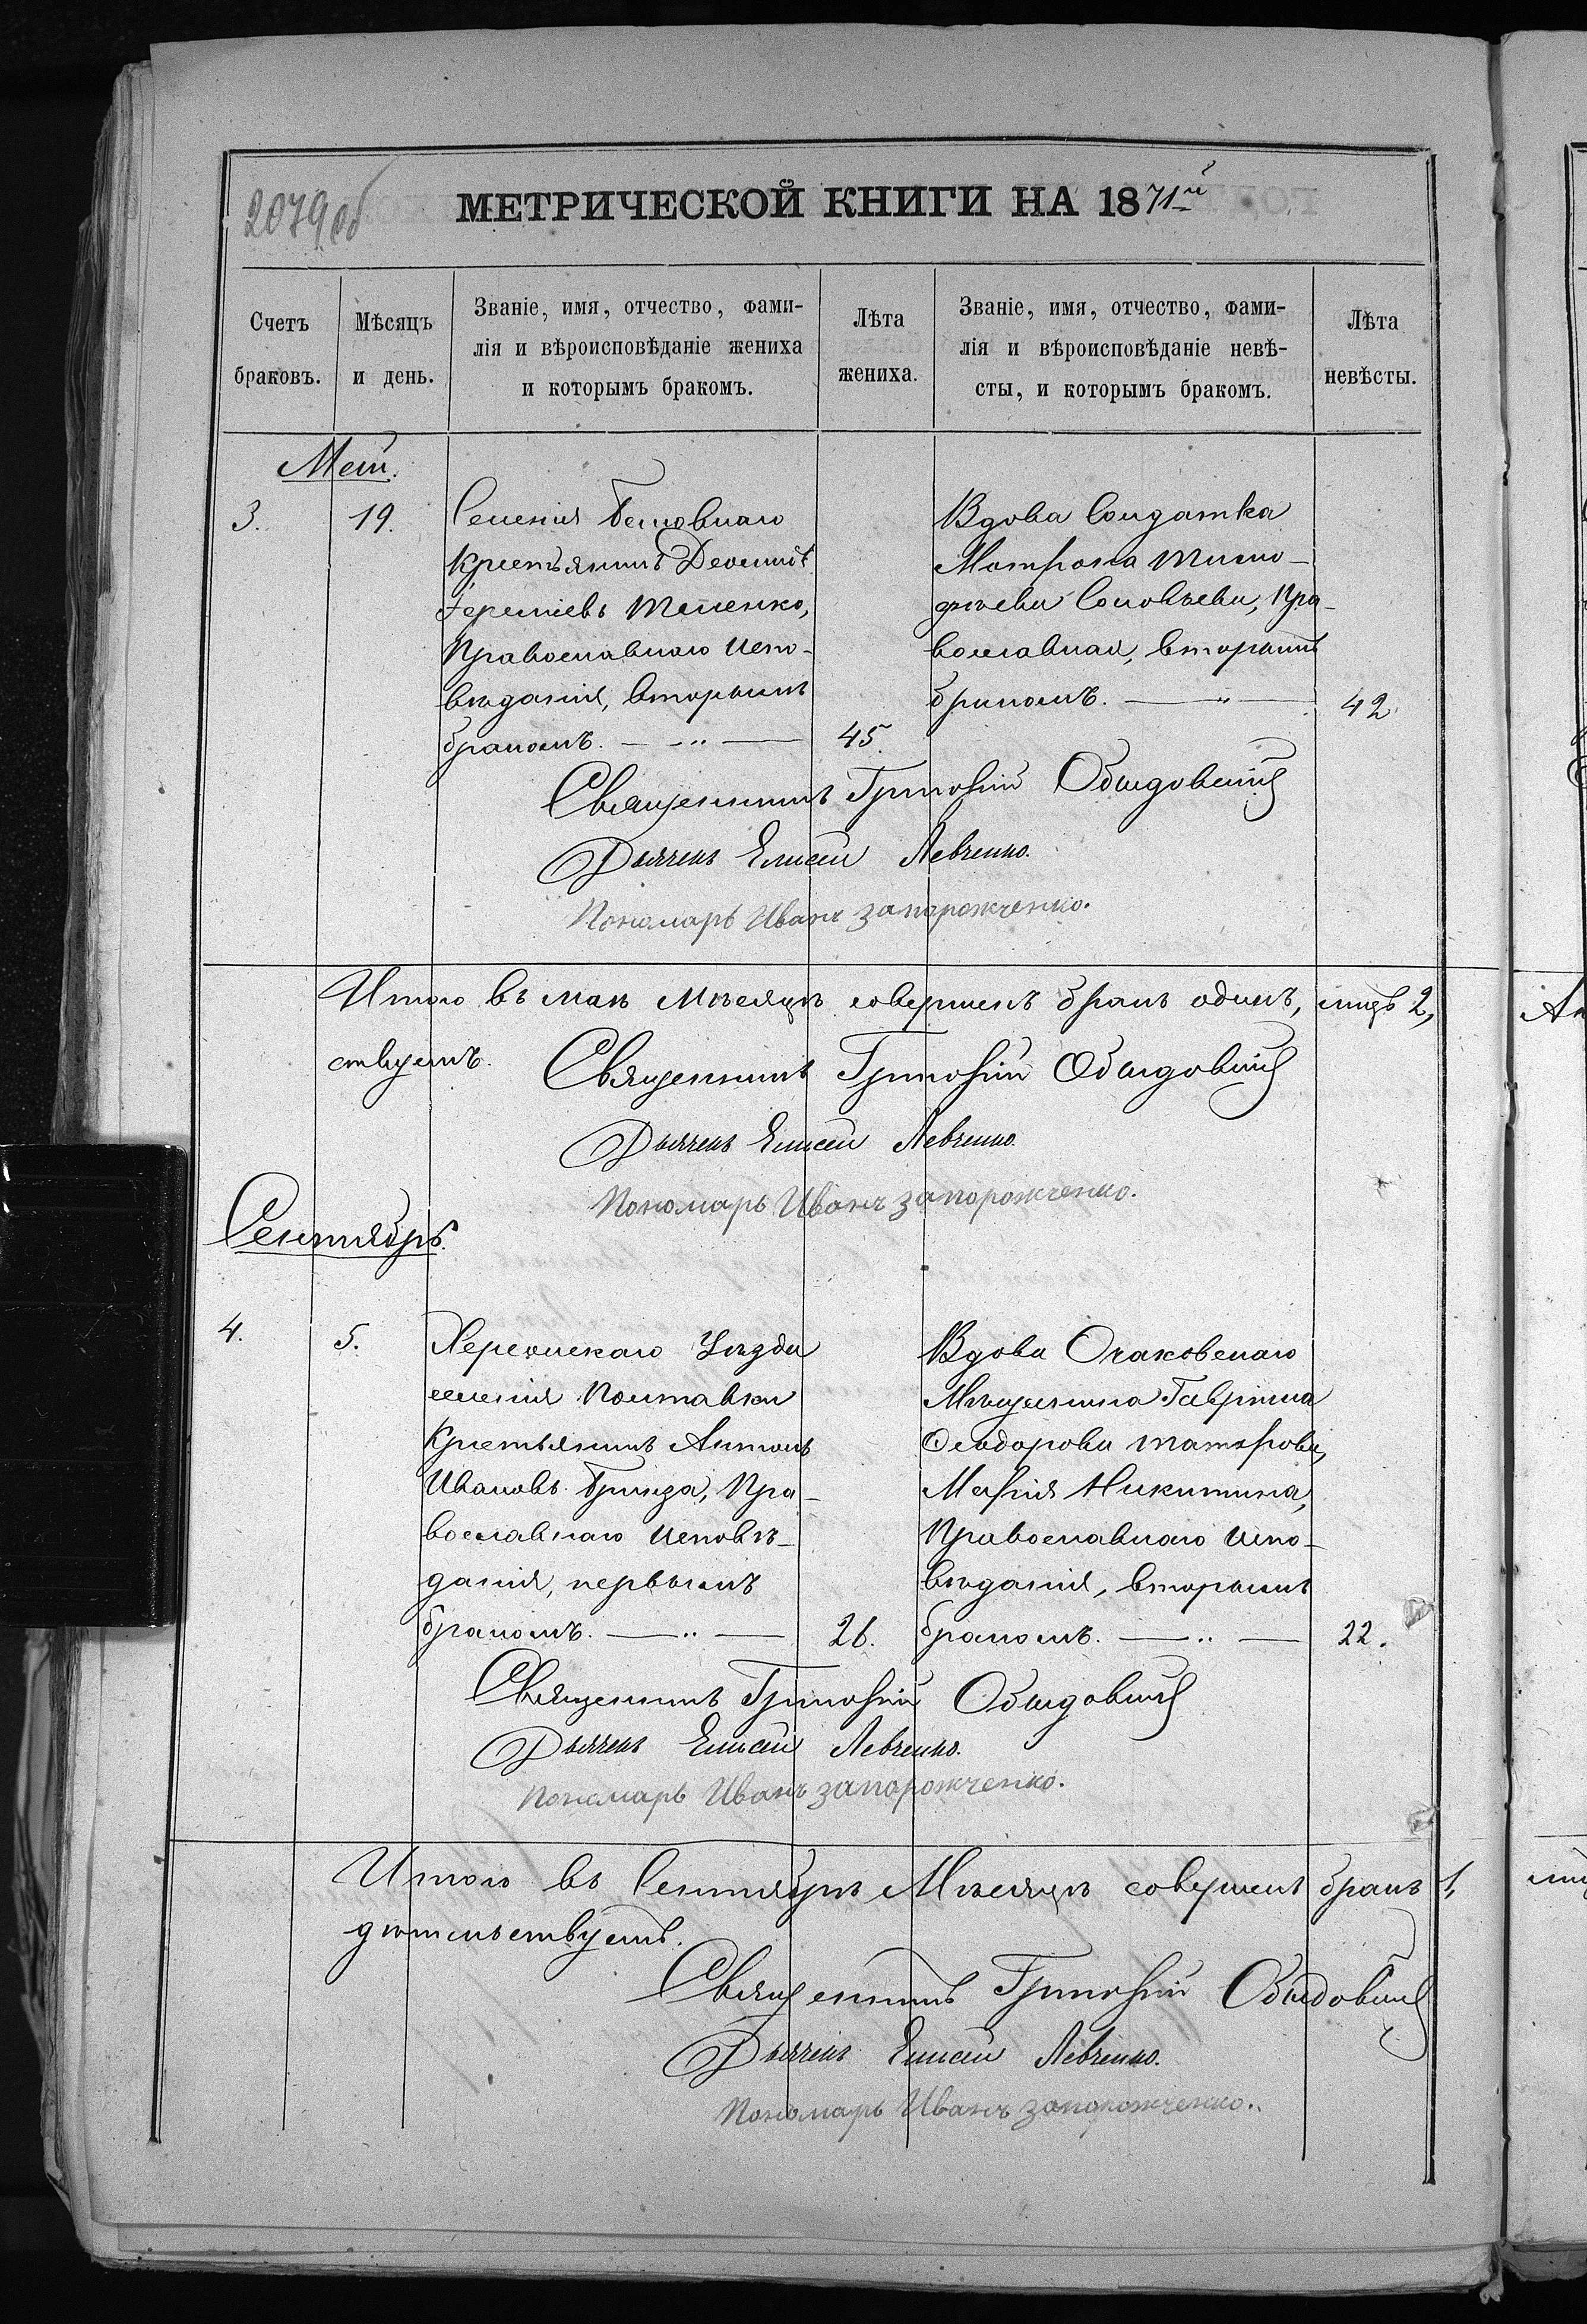 2079об
МЕТРИЧЕСКОЙ КНИГИ НА 1871й
Счетъ браковъ.
Мѣсяцъ и день.
Званіе, имя, отчество, фами-
лія и вѣроисповѣданіе жениха
и которымъ бракомъ.
Лѣта жениха.
Званіе, имя, отчество, фами-
лія и вѣроисповѣданіе невѣ-
сты, и которымъ бракомъ.
Лѣта невѣсты.
Маій.
3.
19.
Селенія
Крестьянинъ
Православнаго испо-
вѣданія, вторымъ
бракомъ.
45.
Вдова Солдатка
Матрона Тимо-
фѣева Соловьева, Пра-
вославная, вторымъ
бракомъ.
42
Священникъ Григорій
Дьячекъ Елисей Левченко.
Пономарь Иванъ Запорожченко.
Итого въ маѣ мѣсяцѣ совершенъ бракъ одинъ, лицъ 2,
ствуемъ.
Священникъ Григорій
Дьячекъ Елисей Левченко.
Пономарь Иванъ Запорожченко.
Сентябрь.
4.
5.
Херсонскаго Уѣзда
селенія Полтавки
Крестьянинъ Антонъ
Ивановъ Пра-
вославнаго исповѣ-
данія, первымъ
бракомъ.
26.
Вдова Очаковскаго
Мѣщанина Гавріила
Ѳеодорова
Марія Никитина,
Православнаго испо-
вѣданія, вторымъ
бракомъ.
22.
Священникъ Григорій
Дьячекъ Елисей Левченко.
Пономарь Иванъ Запорожченко.
Итого въ Сентябрѣ Мѣсяцѣ совершенъ бракъ 1,
дѣтельствуемъ.
Священникъ Григорій
Дьячекъ Елисей Левченко.
Пономарь Иванъ Запорожченко.